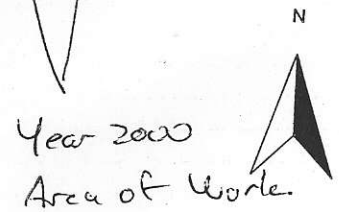 N
Year 2000
Area of Work.